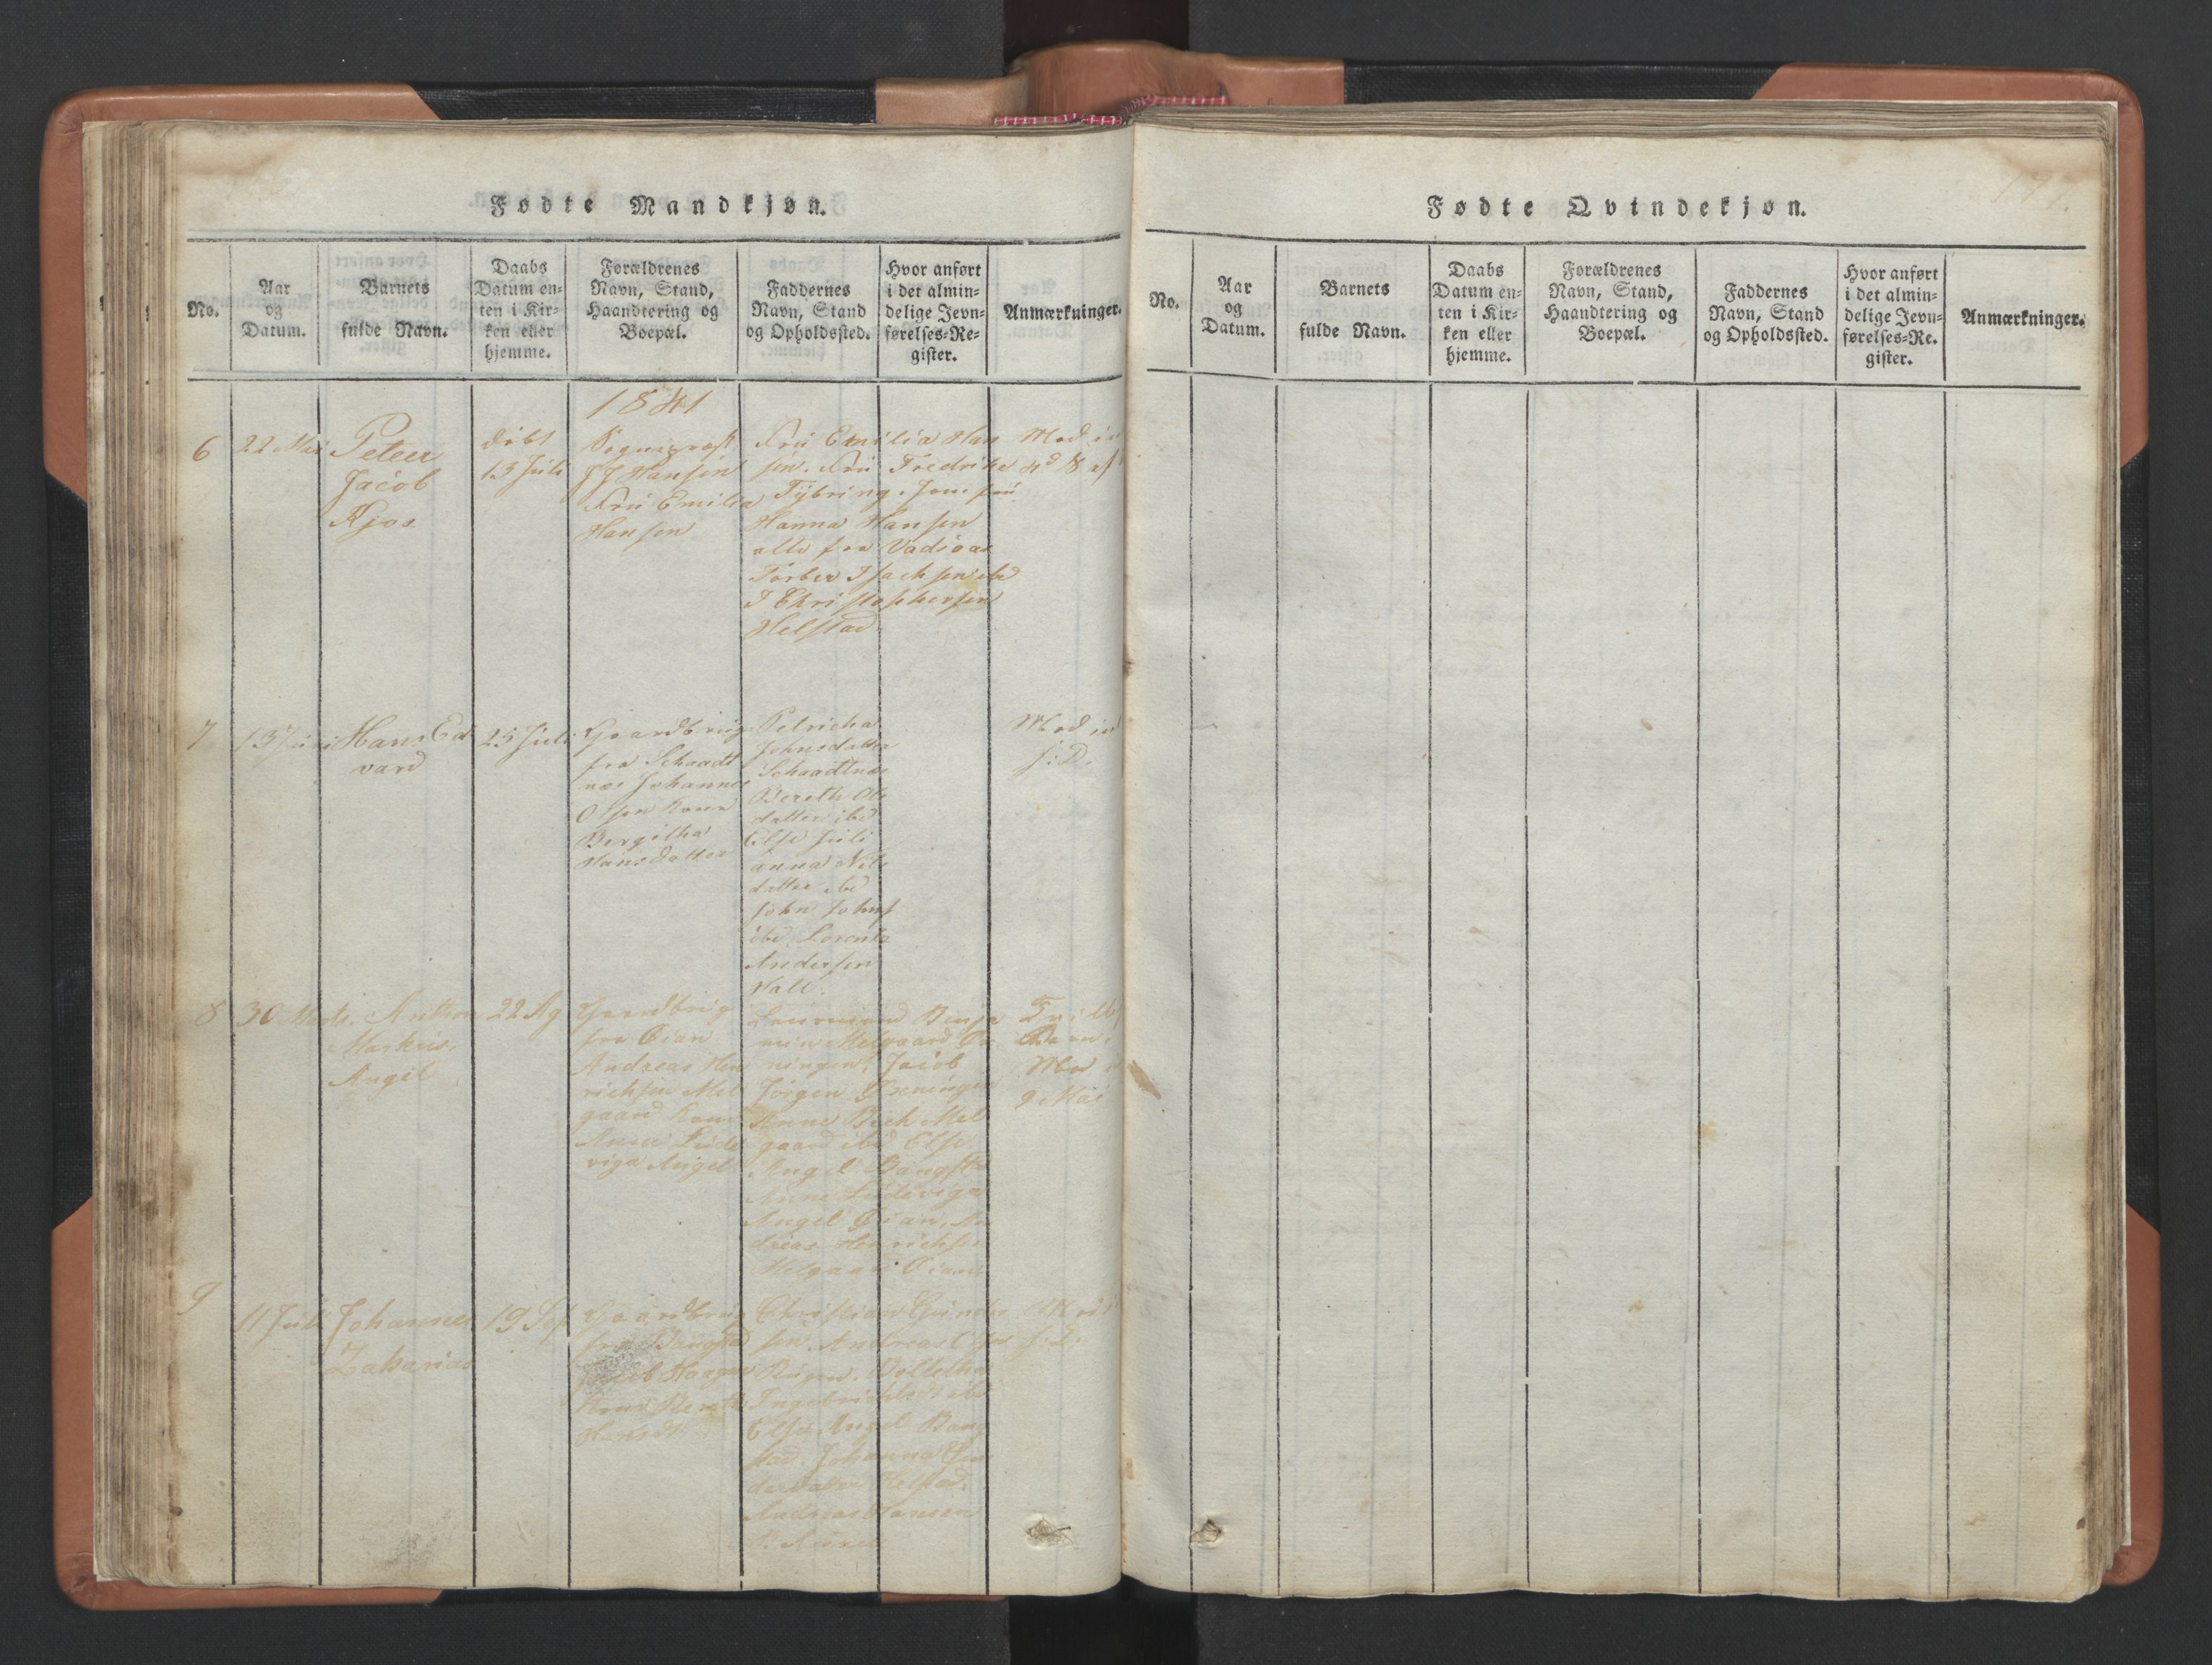 Fødte Mandkjøn.
No.
Aar
og
Datum.
Barnets
fulde Navn.
Daabs
Datum en-
ten i Kir-
ken eller
hjemme.
Forældrenes
Navn, Stand,
Haandtering og
Boepæl.
Faddernes
Navn, Stand
og Opholdssted.
Hvor anført
i det almin-
delige Jevn-
førelses-Re-
gister.
Anmærkninger.
1841
6
22 Mai
Peter
Jacob
Kjos
døbt
13 Juli
Sognepræst
Hansen
Fru Emilia
Hansen
Fru Emilia Han
sen. Fru Fredrike
Tybring. Jomfru
Hanna Hansen
alle fra Vadsøas
Torber Isachsen ibd
J Christophersen
Helstad
Mod in
7
13 Juni
Hans Ed
vard
25 Juli
Gaardbrug
fra Schaadt
næs Johannes
Olsen Kone
Bergitha
Hansdatter
Petricha
Johnsdatter
Schaadtnæs
Bereth Ols
datter ibd
Else Juli
anna Nils
datter ibd
John Johns
ibd. Lorents
Andersen
Vall.
Mod in
f: D.
8
30
Anthon
Markus
Angel
22 Ag
Gaardbrug
fra Øian
Andreas Hen
richsen Mel
gaard Kone
Anne Lude
viga Angel
Benja
min Melgaard
ningen. Jacob
Jørgen
Anne Bech Mel
gaard ibd Else
Angel Bangsta
Anne Ludeviga
Angel Øian. An
dreas Henrichsen
Melgaard Øian
9 Mai
9
11 Juli
Johannes
Zakarias
19 Sep
Gaardbrug
fra Bangstad
Jacob Haagen
Kone Bereth
Hansdt
Christian
sen. Andreas
Ingebrichtsdt ibd
Else Angel Bang
stad. Johanna
datter Helstad.
Andreas Hansen
Mod i
f: D.
Fødte Qvindekjøn.
177.
No.
Aar
og
Datum.
Barnets
fulde Navn.
Daabs
Datum en-
ten i Kir-
ken eller
hjemme.
Forældrenes
Navn, Stand,
Haandtering og
Boepæl.
Faddernes
Navn, Stand
og Opholdssted.
Hvor anført
i det almin-
delige Jevn-
førelses-Re-
gister.
Anmærkninger.